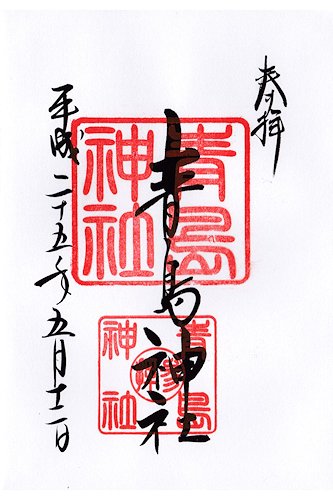 奉拝
青島神社
青島
神社
青島
神社
平成二十五年五月十二日